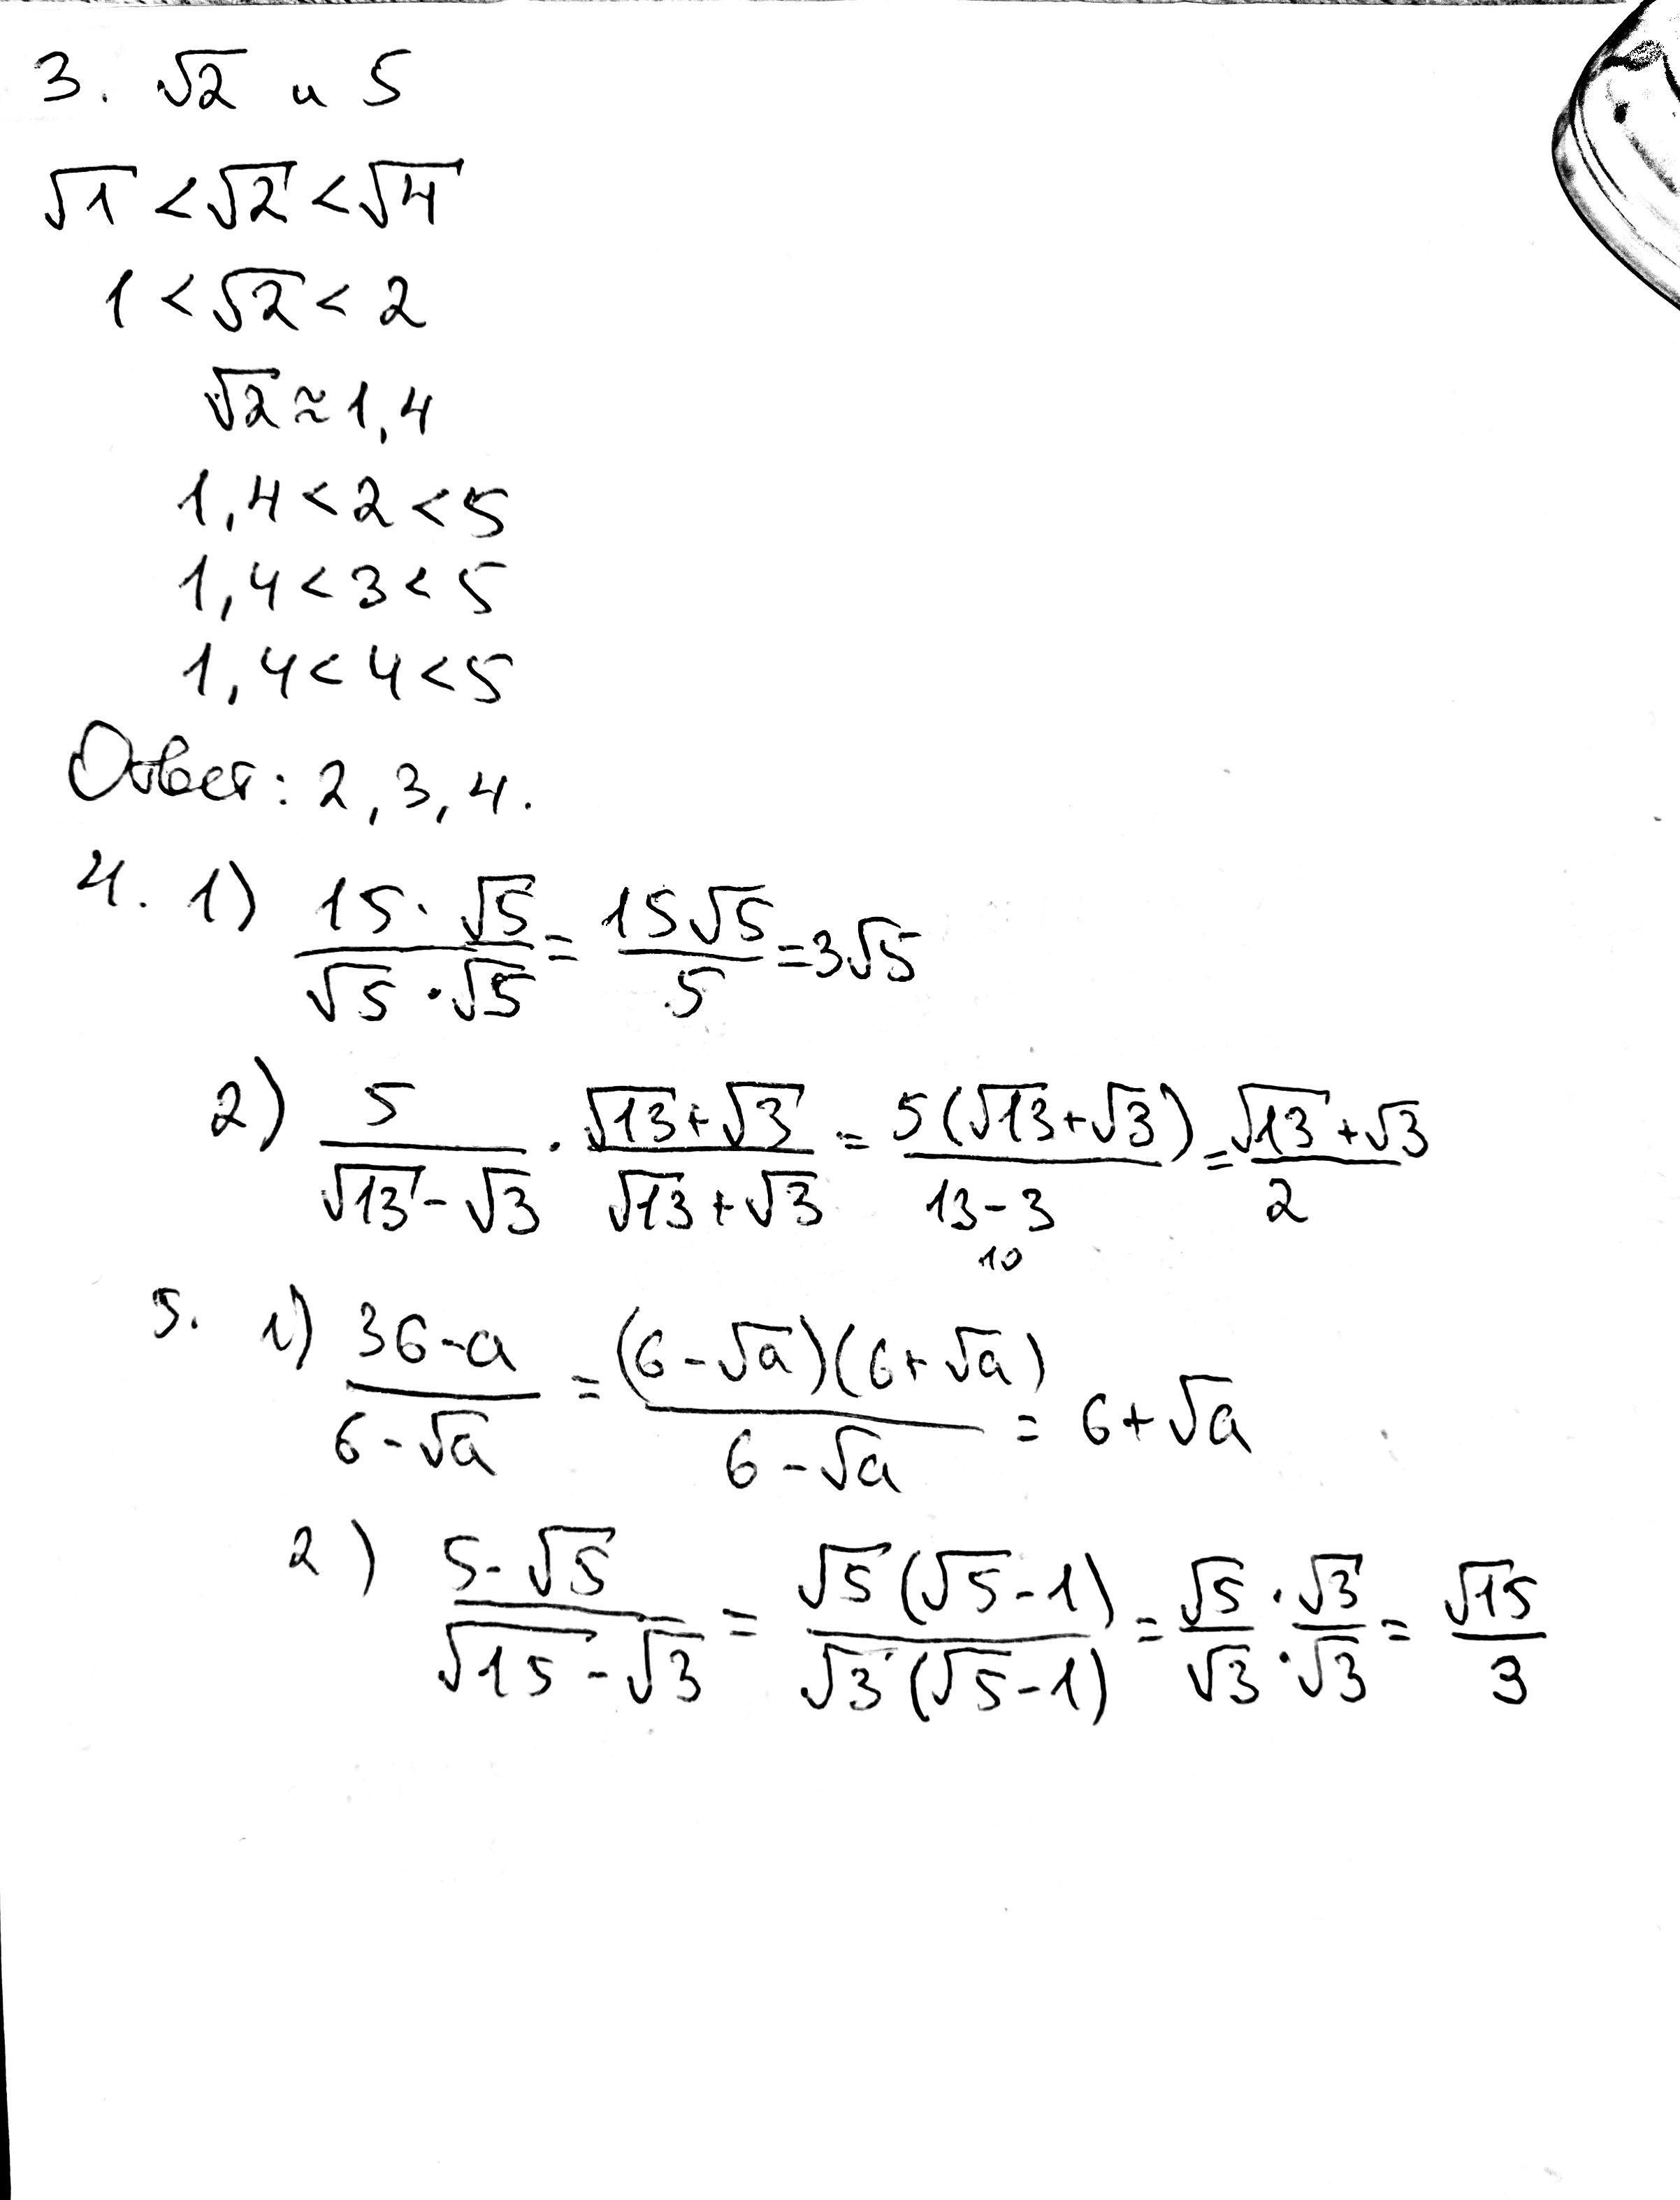 3. √2 и 5
√1 < √2 < √4
1 < √2 < 2
√2 ≈ 1,4
1,4 < 2 < 5
1,4 < 3 < 5
1,4 < 4 < 5
Ответ: 2, 3, 4.
4. 1) (15 · √5)/(√5 · √5) = (15√5)/5 = 3√5
2) 5/(√13 - √3) · (√13 + √3)/(√13 + √3) = 5(√13 + √3)/(13 - 3) = (√13 + √3)/2
10
5. 1) (36 - a)/(6 - √a) = (6 - √a)(6 + √a)/(6 - √a) = 6 + √a
2) (5 - √5)/(√15 - √3) = √5(√5 - 1)/√3(√5 - 1) = (√5 · √3)/(√3 · √3) = √15/3